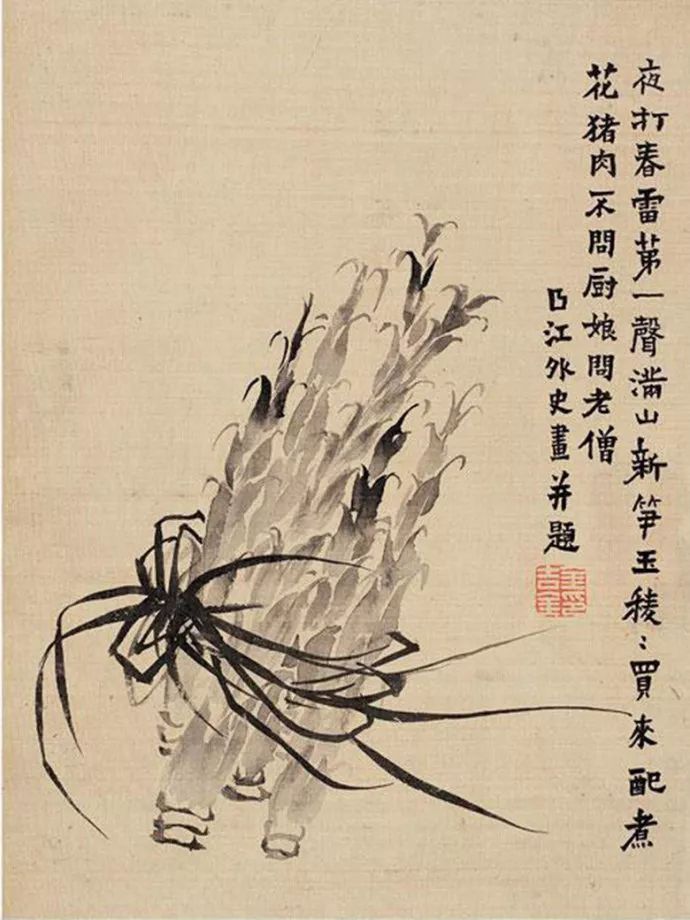 夜打春雷苐一聲滿山新笋玉稜〻買來配煮
花猪肉不問厨娘問老僧
曲江外史畫并題